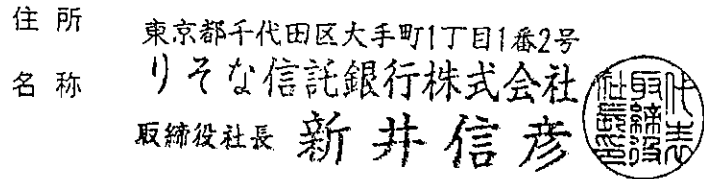 住所 東京都千代田区大手町1丁目1番2号
名称 りそな信託銀行株式会社
取締役社長 新井信彦
代表取締役社長之印